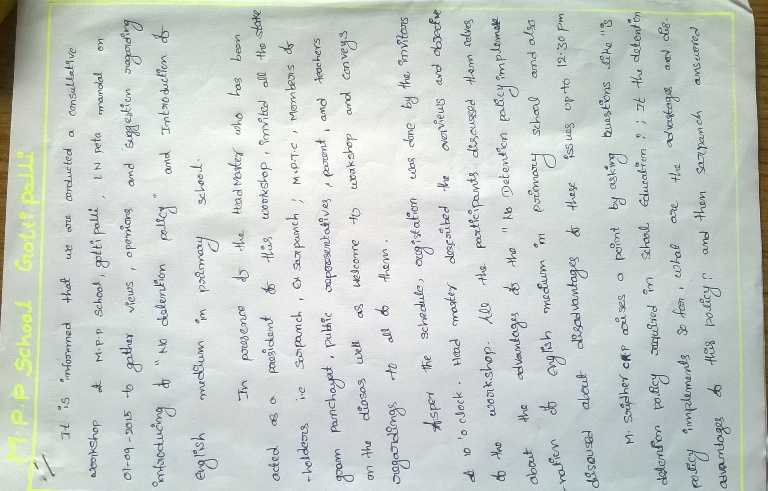 M.P.P School Gotti palli
It is informed that we are conducted a consultative
workshop at M.P.P School, gotti palli, L N peta mandal on
01-09-2015 to gather views, opinions and suggestion regarding
introducing of "No detention policy" and Introduction of
english medium in primary school.
In presence of the HeadMaster who has been
acted as a president of this workshop, invited all the stake
-holders ie sarpanch, ex sarpanch; M.P.T.C, Members of
gram panchayat, public representatives, parent, and teachers
on the diasas well as welcome to workshop and conveys
regardings to all of them.
Asper the schedule, registation was done by the invitors
at 10 'o clock. Head master described the overviews and objective
of the workshop. All the participants discussed them selves
about the advantages of the "No Detention policy impleme
-ration of english medium in primary school and also
disscused about disadvantages of these issues up to 12:30 pm
M. Sridher CRP raises a point by asking Questions like "is
detention policy required in school Education?; If the detention
policy implements so far, what are the advantages and dis-
advantages of this policy? and them sarpanch answered